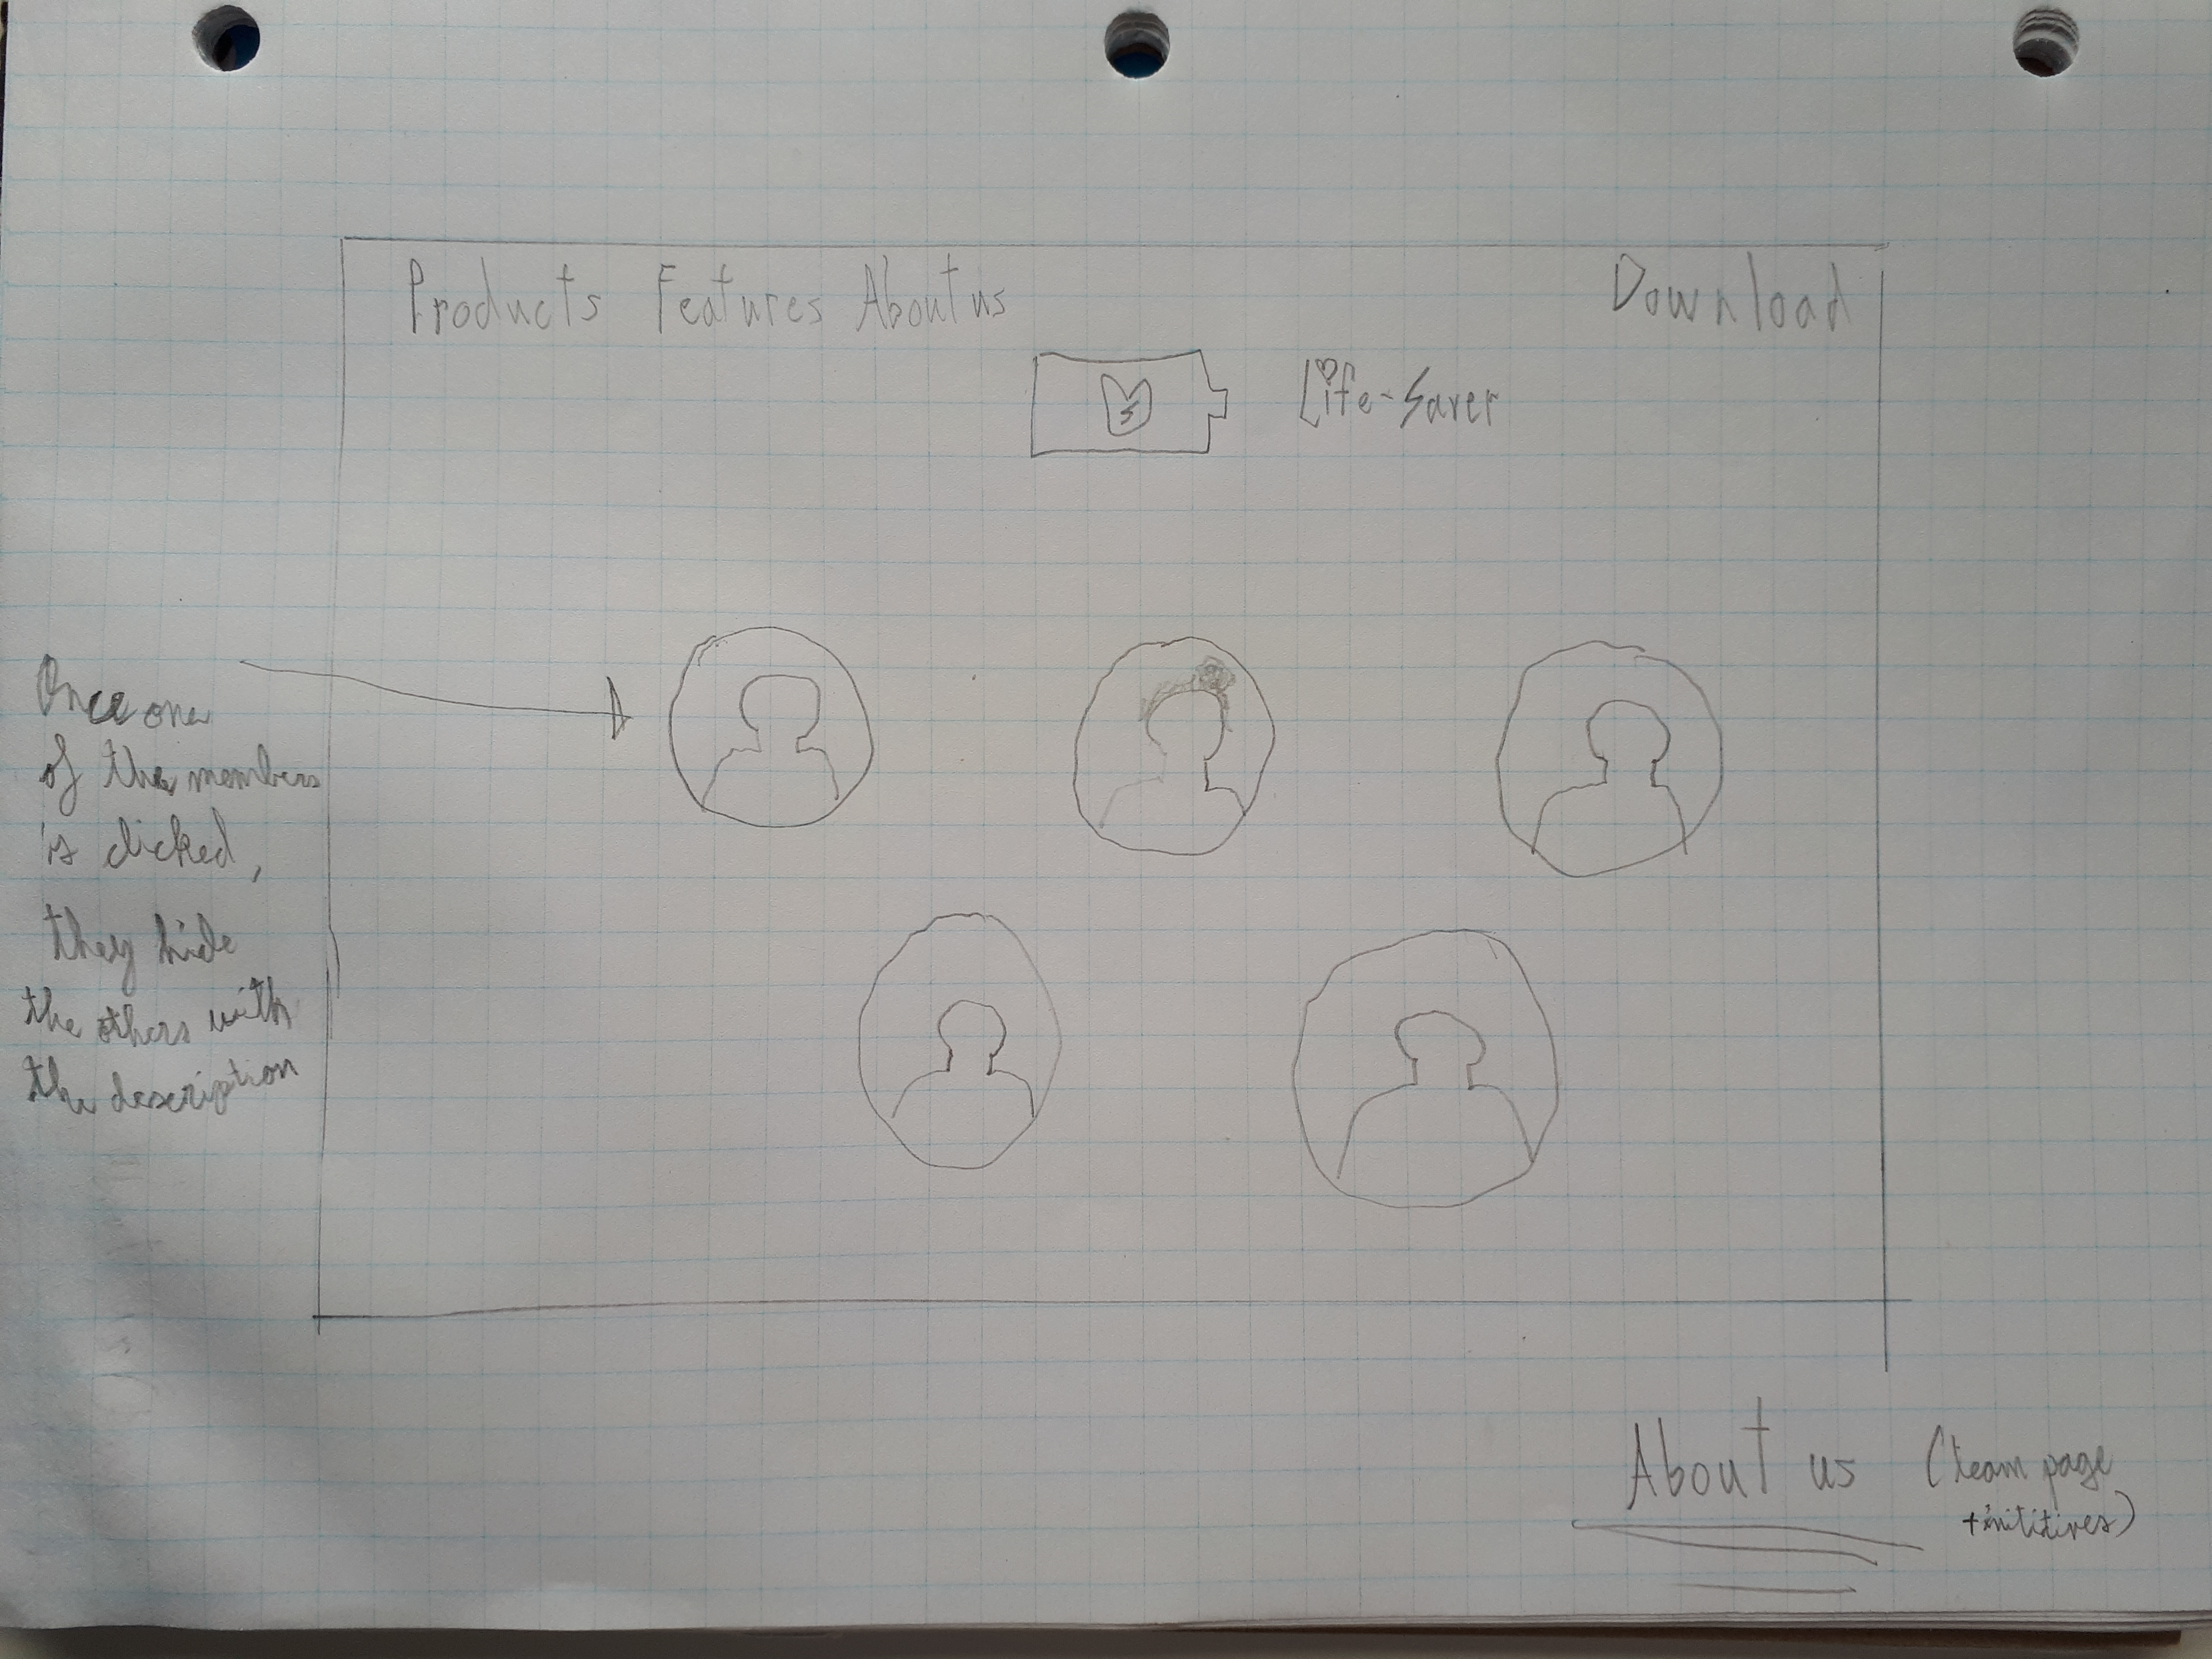 Products Features About us
Download
Life-Saver
Once one
of the members
is clicked,
they hide
the others with
the description
About us (team page
+inititives)